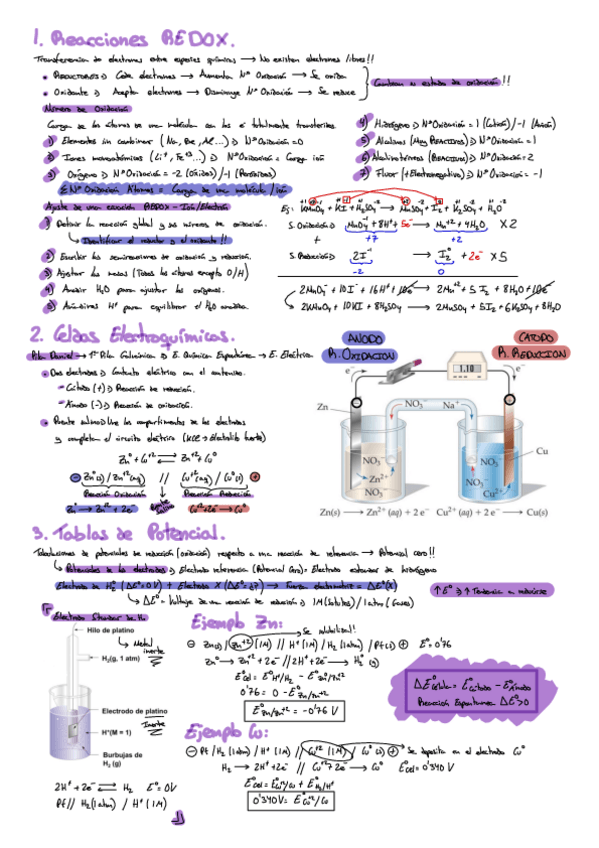 1. Reacciones REDOX.
Transferencia de electrones entre especies químicas → No existen electrones libres!!
• REDUCTORES ⇒ Cede electrones → Aumentan Nº Oxidación → Se oxida
• Oxidante ⇒ Acepta electrones → Disminuye Nº Oxidación → Se reduce
Cambian su estado de oxidación!!
Número de Oxidación
Carga de los átomos de una molécula con los e⁻ totalmente transferidos.
1) Elementos sin combinar (Na, Be, Al...) ⇒ Nº Oxidación = 0
2) Iones monoatómicos (Li⁺, Fe⁺³...) ⇒ Nº Oxidación = Carga ión
3) Oxígeno ⇒ Nº Oxidación = -2 (Óxidos) / -1 (Peróxidos)
Σ Nº Oxidación Átomos = Carga de una molécula / ión
4) Hidrógeno ⇒ Nº Oxidación = 1 (Catión) / -1 (Anión)
5) Alcalinos (Muy REACTIVOS) ⇒ Nº Oxidación = 1
6) Alcalinotérreos (REACTIVOS) ⇒ Nº Oxidación = 2
7) Fluor (+Electronegativo) ⇒ Nº Oxidación = -1
Ajuste de una ecuación REDOX - Ión/Electrón
1) Definir la reacción global y sus números de oxidación.
↳ Identificar el reductor y el oxidante!!
2) Escribir las semirreaciones de oxidación y reducción.
3) Ajustar las masas (Todos los átomos excepto O/H)
4) Añadir H₂O para ajustar los oxígenos.
5) Añadimos H⁺ para equilibrar el H₂O añadido.
Ej: KMnO₄ + KI + H₂SO₄ → MnSO₄ + I₂ + K₂SO₄ + H₂O
S. Oxidación: MnO₄⁻ + 8H⁺ + 5e⁻ → Mn⁺² + 4H₂O X2
+ +7 +2
S. Reducción: 2I⁻ → I₂⁰ + 2e⁻ X5
-2 0
2MnO₄⁻ + 10I⁻ + 16H⁺ + 10e⁻ → 2Mn⁺² + 5I₂ + 8H₂O + 10e⁻
2KMnO₄ + 10KI + 8H₂SO₄ → 2MnSO₄ + 5I₂ + 6K₂SO₄ + 8H₂O
2. Celdas Electroquímicas.
Pila Daniel → 1ª Pila Galvánica ⇒ E. Química Espontánea → E. Eléctrica
• Dos electrodos ⇒ Contacto eléctrico con el contenido.
- Cátodo (+) ⇒ Reacción de reducción.
- Ánodo (-) ⇒ Reacción de oxidación.
• Puente salino ⇒ Une los compartimentos de los electrodos
y completa el circuito eléctrico (KCl → Electrolito fuerte)
Zn⁰ + Cu⁺² ⇄ Zn⁺² + Cu⁰
⊖ Zn(s) / Zn⁺²(aq) // Cu⁺²(aq) / Cu⁰(s) ⊕
Reacción Oxidación Reacción Reducción
Zn⁰ → Zn⁺² + 2e⁻ Puente Salino Cu⁺² + 2e⁻ → Cu⁰
ÁNODO
R. OXIDACIÓN
CÁTODO
R. REDUCCIÓN
e⁻
1.10
e⁻
Zn
NO₃⁻
Na⁺
Cu
NO₃⁻
Zn²⁺
NO₃⁻
NO₃⁻
Cu²⁺
Zn(s) → Zn²⁺ (aq) + 2 e⁻ Cu²⁺ (aq) + 2 e⁻ → Cu(s)
3. Tablas de Potencial.
Tabulaciones de potenciales de reducción (oxidación) respecto a una reacción de referencia → Potencial cero!!
↳ Potenciales de los electrodos ⇒ Electrodo referencia (Potencial Cero) = Electrodo estándar de hidrógeno
Electrodo de H₂ (ΔE⁰=0V) + Electrodo X (ΔE⁰=¿?) → Fuerza electromotriz = ΔE⁰(X)
↳ ΔE⁰ = Voltaje de una reacción de reducción ⇒ 1M (Solutos) / 1atm (Gases)
↑E⁰ ⇒ ↑ Tendencia a reducirse
Electrodo Stándar de H₂
Hilo de platino
Metal inerte
H₂(g, 1 atm)
Electrodo de platino
Inerte
H⁺(M = 1)
Burbujas de
H₂ (g)
2H⁺ + 2e⁻ ⇄ H₂ E⁰=0V
Pt // H₂(1atm) / H⁺ (1M)
Ejemplo Zn:
Se solubiliza!!
⊖ Zn(s) / Zn⁺² (1M) // H⁺ (1M) / H₂ (1atm) / Pt(s) ⊕ E⁰=0'76
Zn⁰ → Zn⁺² + 2e⁻ // 2H⁺ + 2e⁻ → H₂ (g)
E⁰cel = E⁰H⁺/H₂ - E⁰Zn⁺²/Zn
0'76 = 0 - E⁰Zn/Zn⁺²
E⁰Zn/Zn⁺² = -0'76 V
ΔE⁰Célula = E⁰Cátodo - E⁰Ánodo
Reacción Espontánea ΔE⁰>0
Ejemplo Cu:
⊖ Pt / H₂ (1atm) / H⁺ (1M) // Cu⁺² (1M) / Cu⁰ (s) ⊕ → Se deposita en el electrodo Cu⁰
H₂ → 2H⁺ + 2e⁻ // Cu⁺² + 2e⁻ → Cu⁰ E⁰cel = 0'340 V
E⁰cel = E⁰Cu⁺²/Cu + E⁰H₂/H⁺
0'340V = E⁰Cu⁺²/Cu